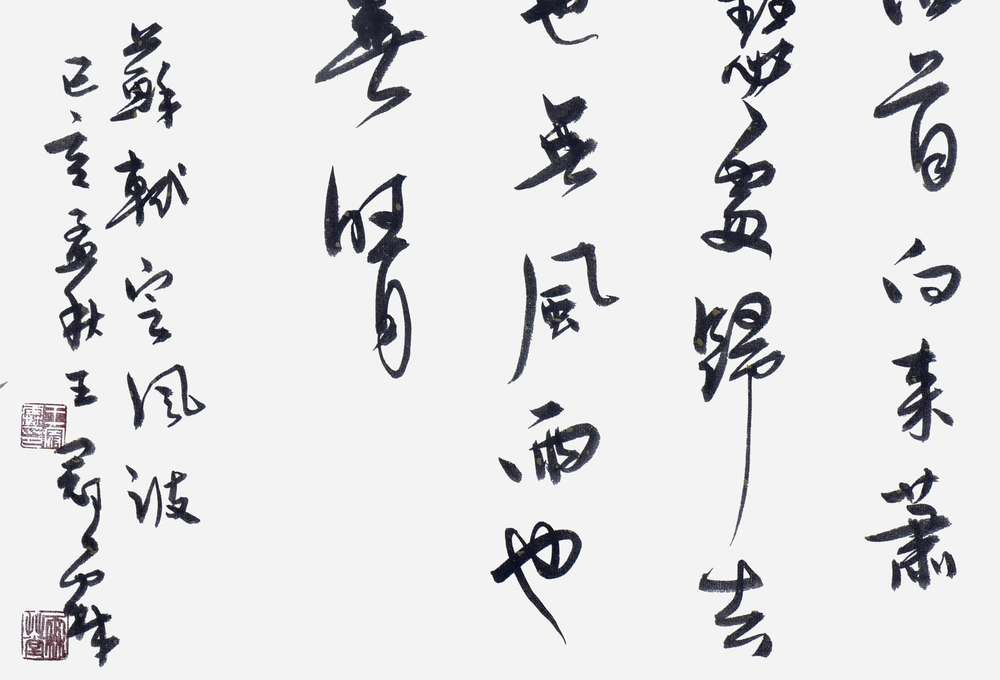 首向来蕭
瑟處歸去
也無風雨也
無晴
蘇軾定風波
己亥孟秋王